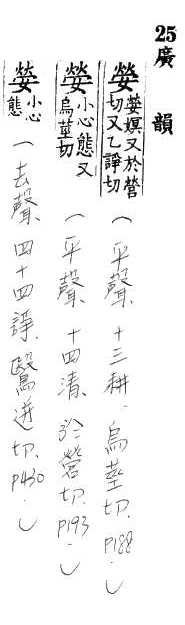 25廣 韻
嫈 嫈嫇又於營切又乙諍切 (平聲、十三耕.烏莖切.P188.)
嫈 小心態又烏莖切 (平聲、十四清、於營切.P193.)
嫈 小心態 (去聲、四十四諍、鷖迸切.P430.)